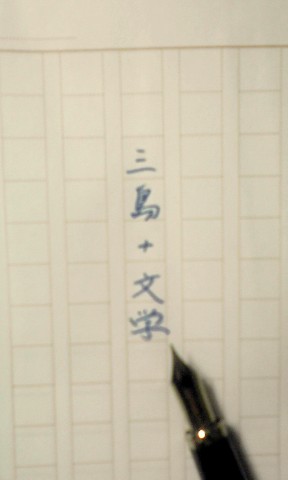 三島+文学